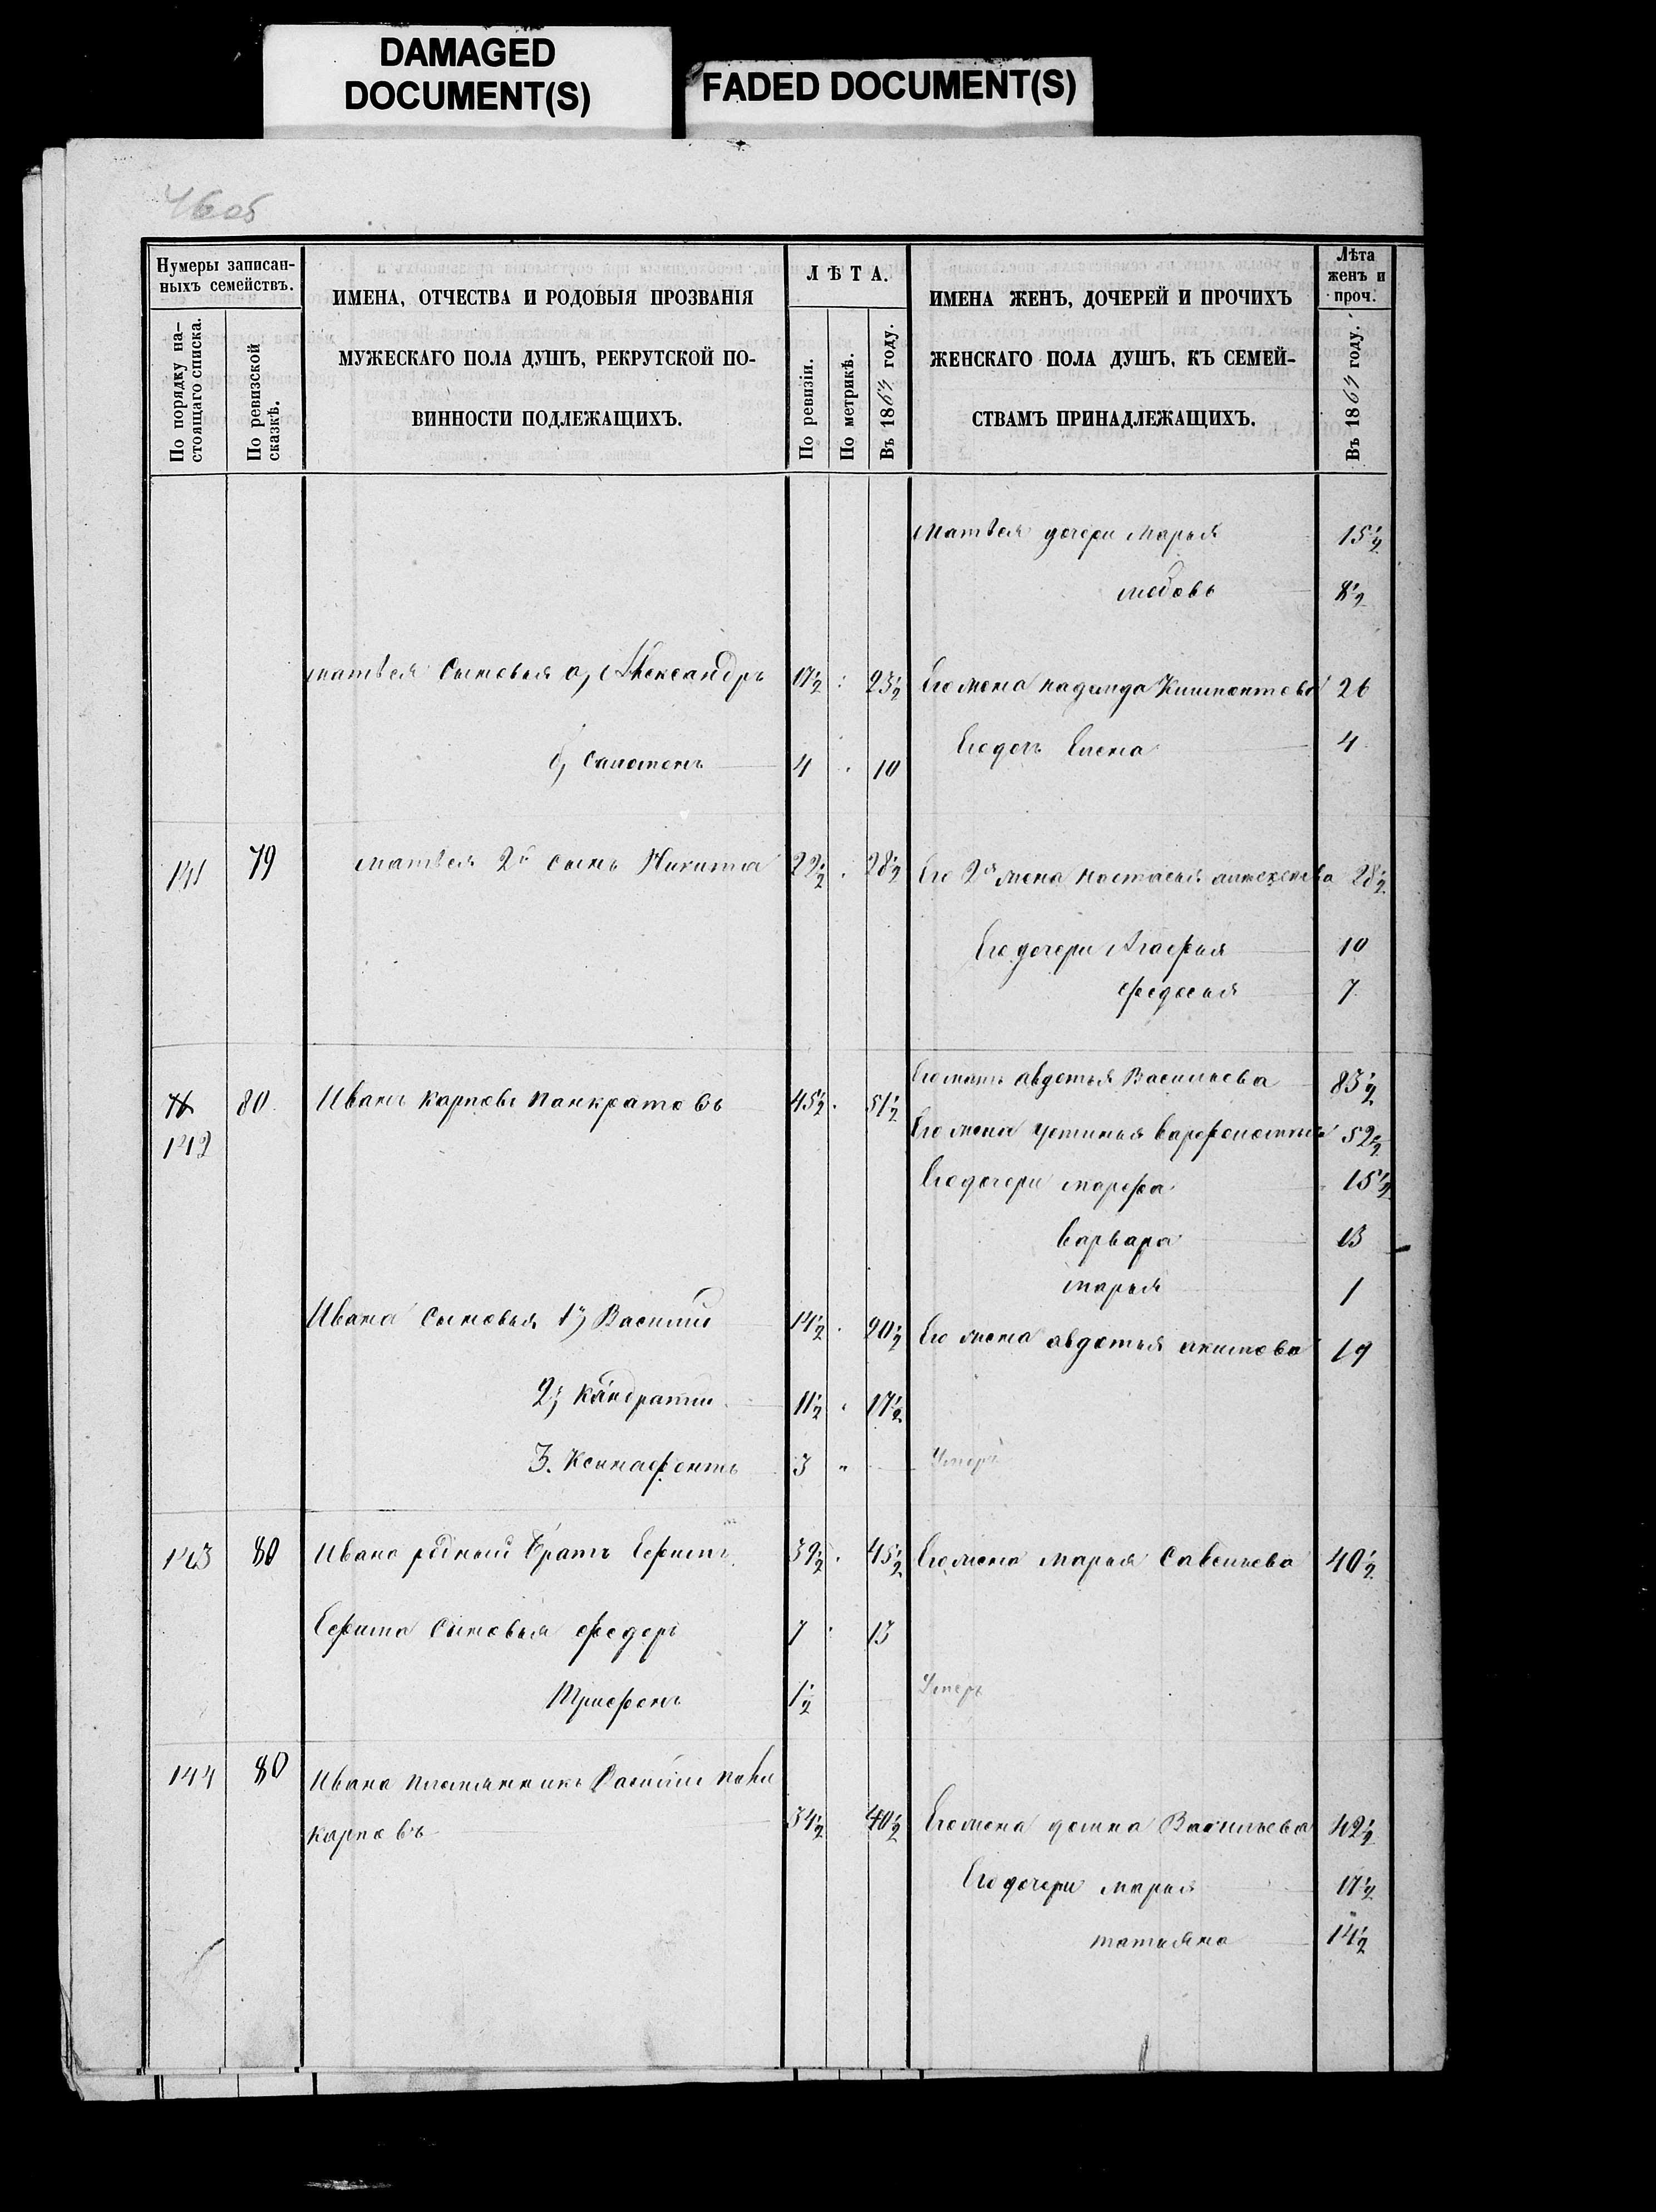 DAMAGED
DOCUMENT(S)
FADED DOCUMENT(S)
46об
Нумеры записан-
ныхъ семействъ.
По порядку на-
стоящаго списка.
По ревизской
сказкѣ.
ИМЕНА, ОТЧЕСТВА И РОДОВЫЯ ПРОЗВАНІЯ
МУЖЕСКАГО ПОЛА ДУШЪ, РЕКРУТСКОЙ ПО-
ВИННОСТИ ПОДЛЕЖАЩИХЪ.
ЛѢТА.
По ревизіи.
По метрикѣ.
Въ 1864 году.
ИМЕНА ЖЕНЪ, ДОЧЕРЕЙ И ПРОЧИХЪ
ЖЕНСКАГО ПОЛА ДУШЪ, КЪ СЕМЕЙ-
СТВАМЪ ПРИНАДЛЕЖАЩИХЪ.
Лѣта
женъ и
проч.
Въ 1864 году.
Матвея дочери Марья 15½
любовь 8½
матвея Сыновья а, Александръ 17½ 23½ Его жена надежда 26
б, Самсонъ 4 10 Его дочь Елена 4
141 79 матвея 2й сынъ Никита 22½ 28½ Его 2я жена настасья 28½
Его дочери Агафья 10
федосья 7
Его мать авдотья Васильева 83½
80 Иванъ карповъ панкратовъ 45½ 51½
142 Его жена устинья 52½
Его дочери марфа 15½
варвара 13
марья 1
Ивана Сыновья 1, Василий 14½ 20½ Его жена авдотья акимова 19
2, кандратий 11½ 17½
3. Ксинафонтъ 3 " Умеръ
143 80 Ивана родный братъ Ефимъ 39½ 45½ Его жена марья Савельева 40½
Ефима Сыновья федоръ 7 13
Трифонъ ½ Умеръ
144 80 Ивана племянникъ Василий
карповъ 34½ 40½ Его жена домна Васильева 42½
Его дочери марья 17½
татьяна 14½